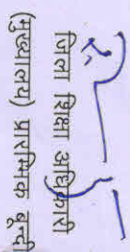 जिला शिक्षा अधिकारी
(मुख्यालय) प्रारम्भिक बून्दी